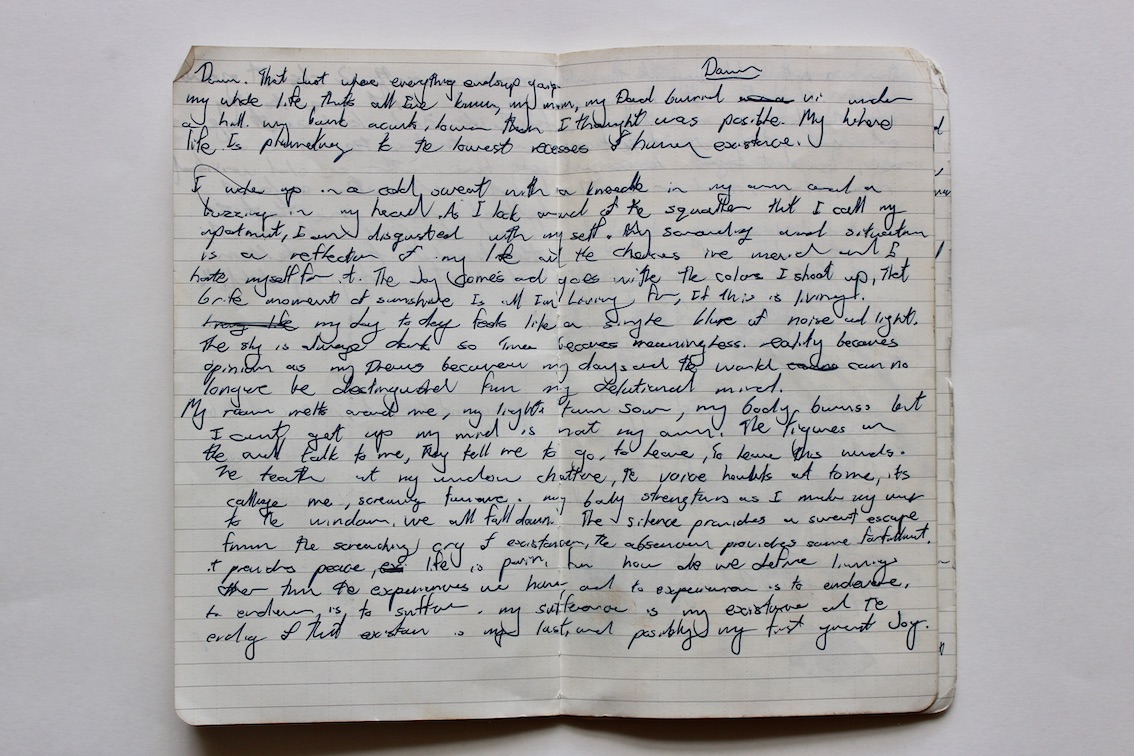 Down
Down. That just where everything endsup going.
my whole life, thats all I've known, my mom, my Dad burried us under
a hill. my bank acunt, lower then I thought was posible. My whole
life Is plumeting to the lowest recesses of human existance.
I wake up in a cold sweat with a kneedle in my arm and a
buzzing in my head. As I look around the squaller that I call my
apartment, I am disgusted with my self. My and situation
is a reflection of my life and the choices ive and I
hate myself for it. The Joy comes and goes with the the colors I shoot up, that
brife moment of sunshine Is all I'm Living for, If this is living.
my day to day feels like a single blure of noise and light.
The sky is always dark so time becomes meaningless. reality becomes
opinion as my Dreams become my days and the world can no
longer be destinguished from my delutional mind.
My room melts around me, my lights turn sour, my body burns but
I cant get up my mind is not my own. The figures on
the wall talk to me, They tell me to go, to leave, To leave this
The teath at my window chatter, the voice howls at to me, its
calling me, screaming . my body strengthens as I make my way
to the window, we all fall down. The silence provides a sweet escape
from the screaching cry of existance, the absence provides some
it provides peace, life is pain, for how do we define
other then the experiences we have and to experience is to endure,
to endure is to suffer. my sufferance is my existance and the
ending of that existance is my last, and posibly my first great Joy.